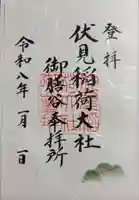 登拝
伏見稲荷大社
御膳谷奉拝所
令和八年一月一日